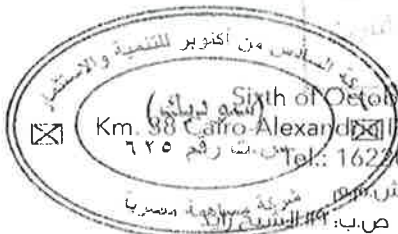 شركة السادس من أكتوبر للتنمية والاستثمار
(سوديك)
Sixth of Octob
Km. 38 Cairo-Alexand
س.ت رقم ٦٢٥
Tel.: 1622
شركة مساهمة مصرية
ص.ب: ١١٩ الشيخ زايد